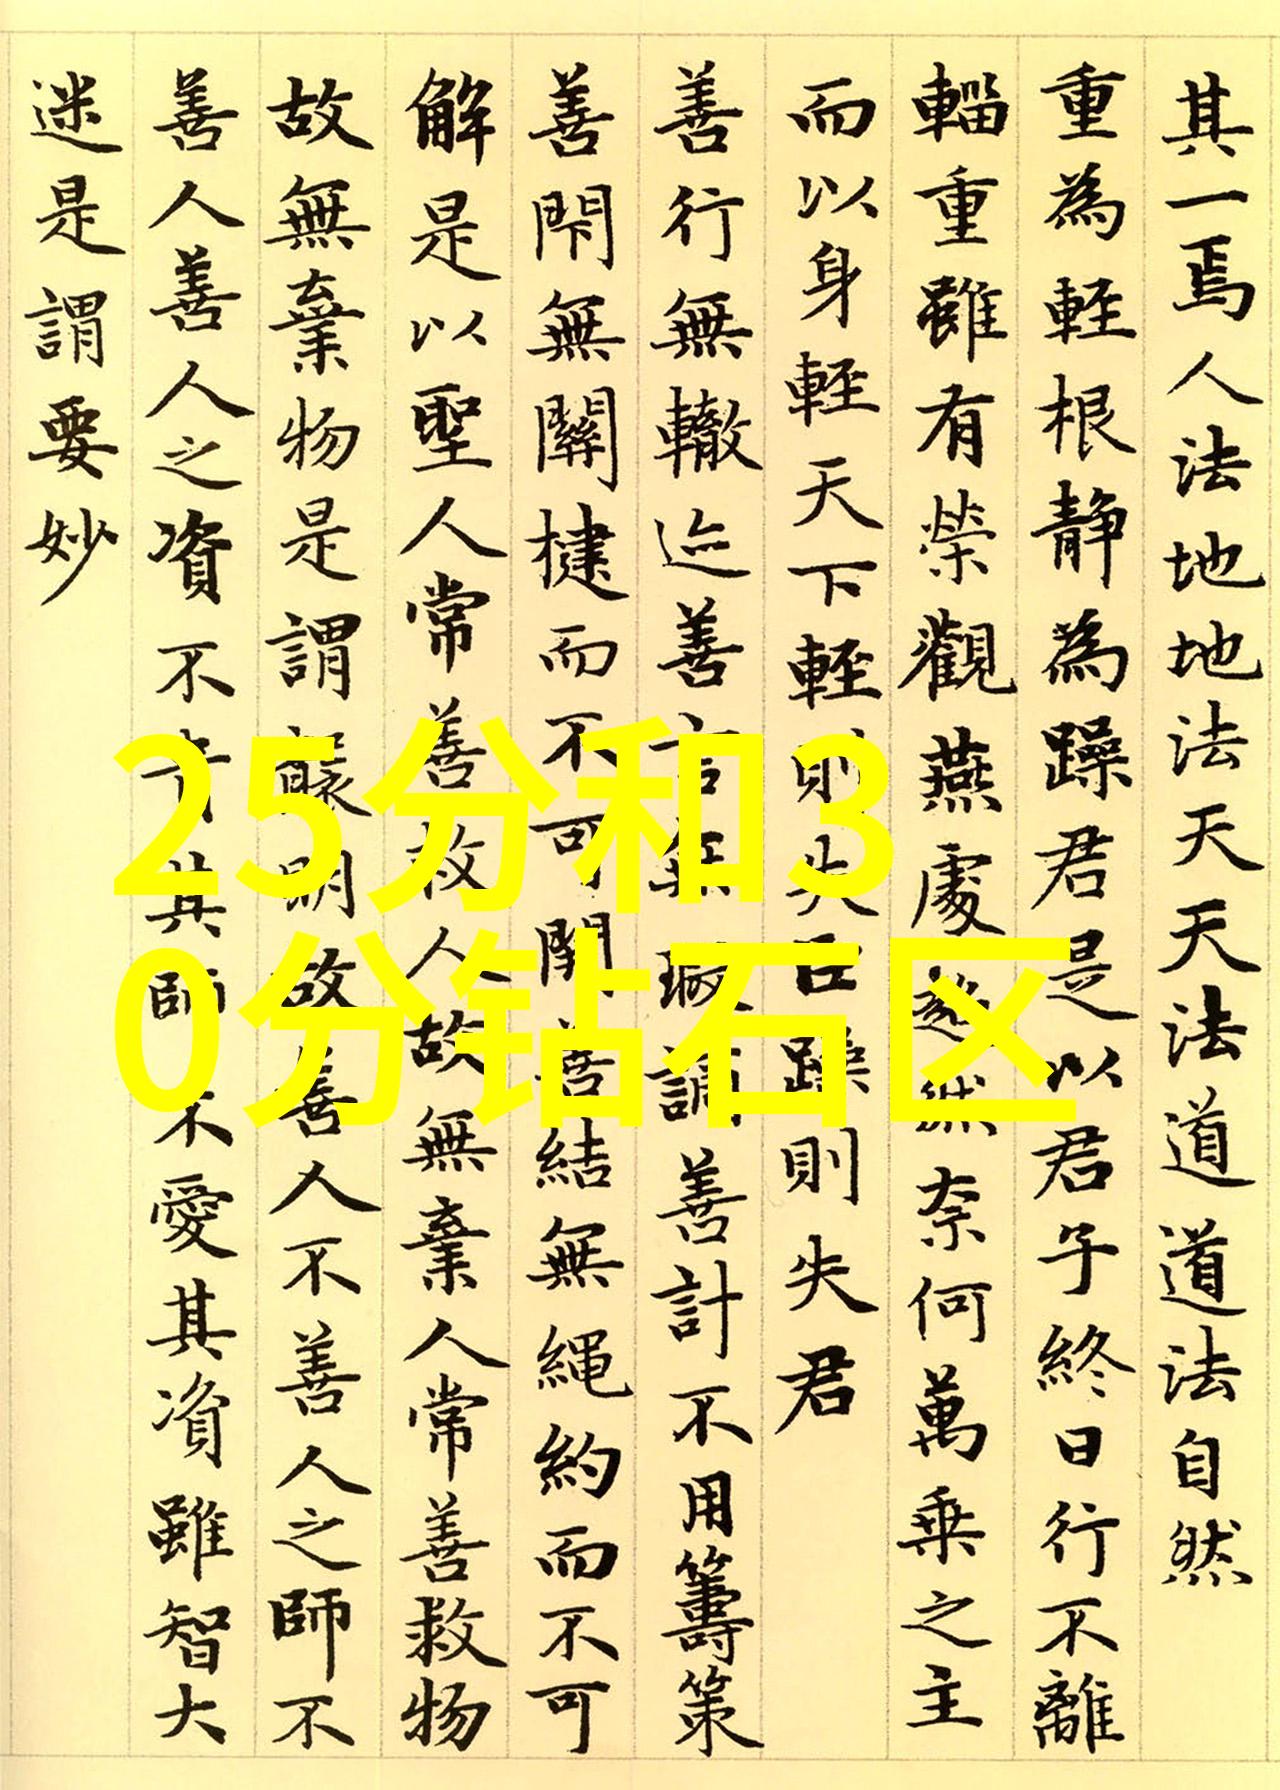 其一焉人法地地法天天法道道法自然
重為輕根靜為躁君是以君子終日行不離
輜重雖有榮觀燕處超然奈何萬乘之主
而以身輕天下輕則失臣躁則失君
善行無轍迹善言無瑕謫善計不用籌策
善閇無關楗而不可開善結無繩約而不可
解是以聖人常善救人故無棄人常善救物
故無棄物是謂襲明故善人不善人之師不
善人善人之資不貴其師不愛其資雖智大
迷是謂要妙
25分和3
0分钻石区